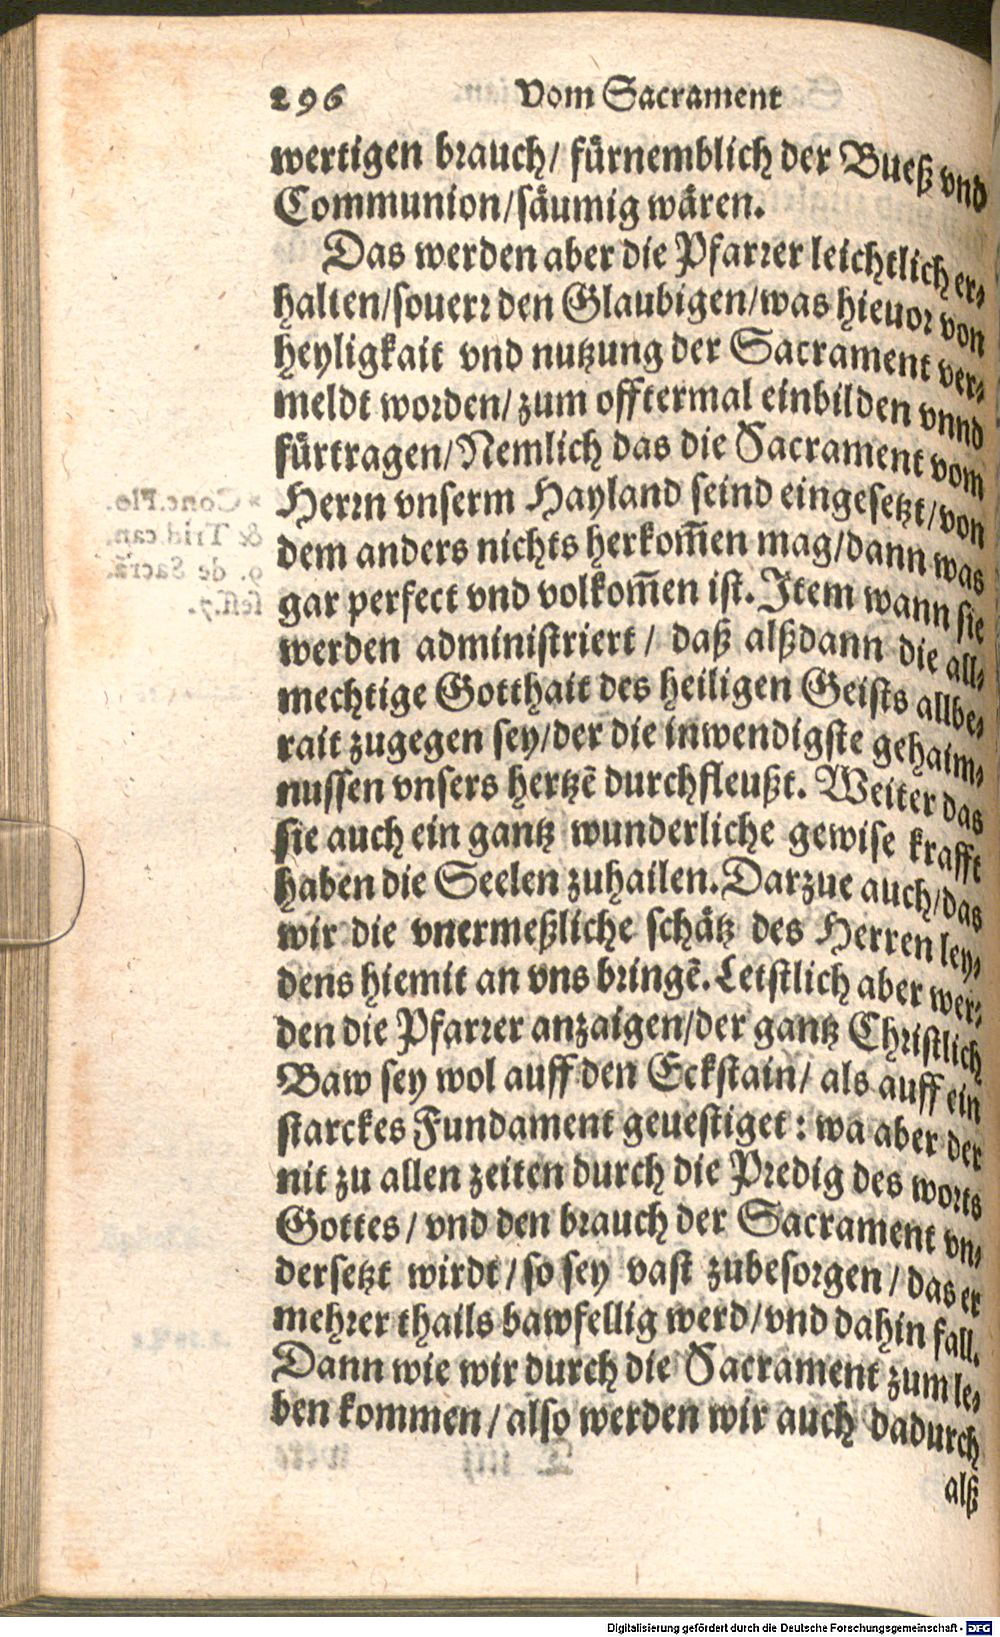 296 Vom Sacrament
wertigen brauch/ fürnemblich der Bueß vnd
Communion/säumig wären.
Das werden aber die Pfarrer leichtlich er-
halten/souerr den Glaubigen/was hieuor von
heyligkait vnd nutzung der Sacrament ver-
meldt worden/ zum offtermal einbilden vnnd
fürtragen/Nemlich das die Sacrament vom
Herrn vnserm Hayland seind eingesetzt/von
dem anders nichts herkom̄en mag/dann was
gar perfect vnd volkom̄en ist. Item wann sie
werden administriert/ daß alßdann die all-
mechtige Gotthait des heiligen Geists allbe-
rait zugegen sey/der die inwendigste gehaim-
nussen vnsers hertzē durchfleußt. Weiter das
sie auch ein gantz wunderliche gewise krafft
haben die Seelen zuhailen. Darzue auch/das
wir die vnermeßliche schätz des Herren ley-
dens hiemit an vns bringē. Letstlich aber wer-
den die Pfarrer anzaigen/der gantz Christlich
Baw sey wol auff den Eckstain/ als auff ein
starckes Fundament geuestiget: wa aber der
nit zu allen zeiten durch die Predig des worts
Gottes/ vnd den brauch der Sacrament vn-
dersetzt wirdt/so sey vast zubesorgen/ das er
mehrer thails bawfellig werd/vnd dahin fall.
Dann wie wir durch die Sacrament zum le-
ben kommen/ also werden wir auch dadurch
alß
Digitalisierung gefördert durch die Deutsche Forschungsgemeinschaft - DFG